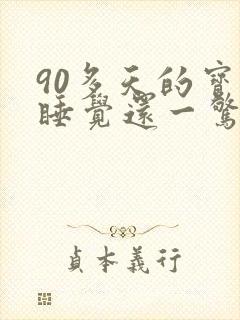 90多天的寶
睡覺還一驚
貞本義行